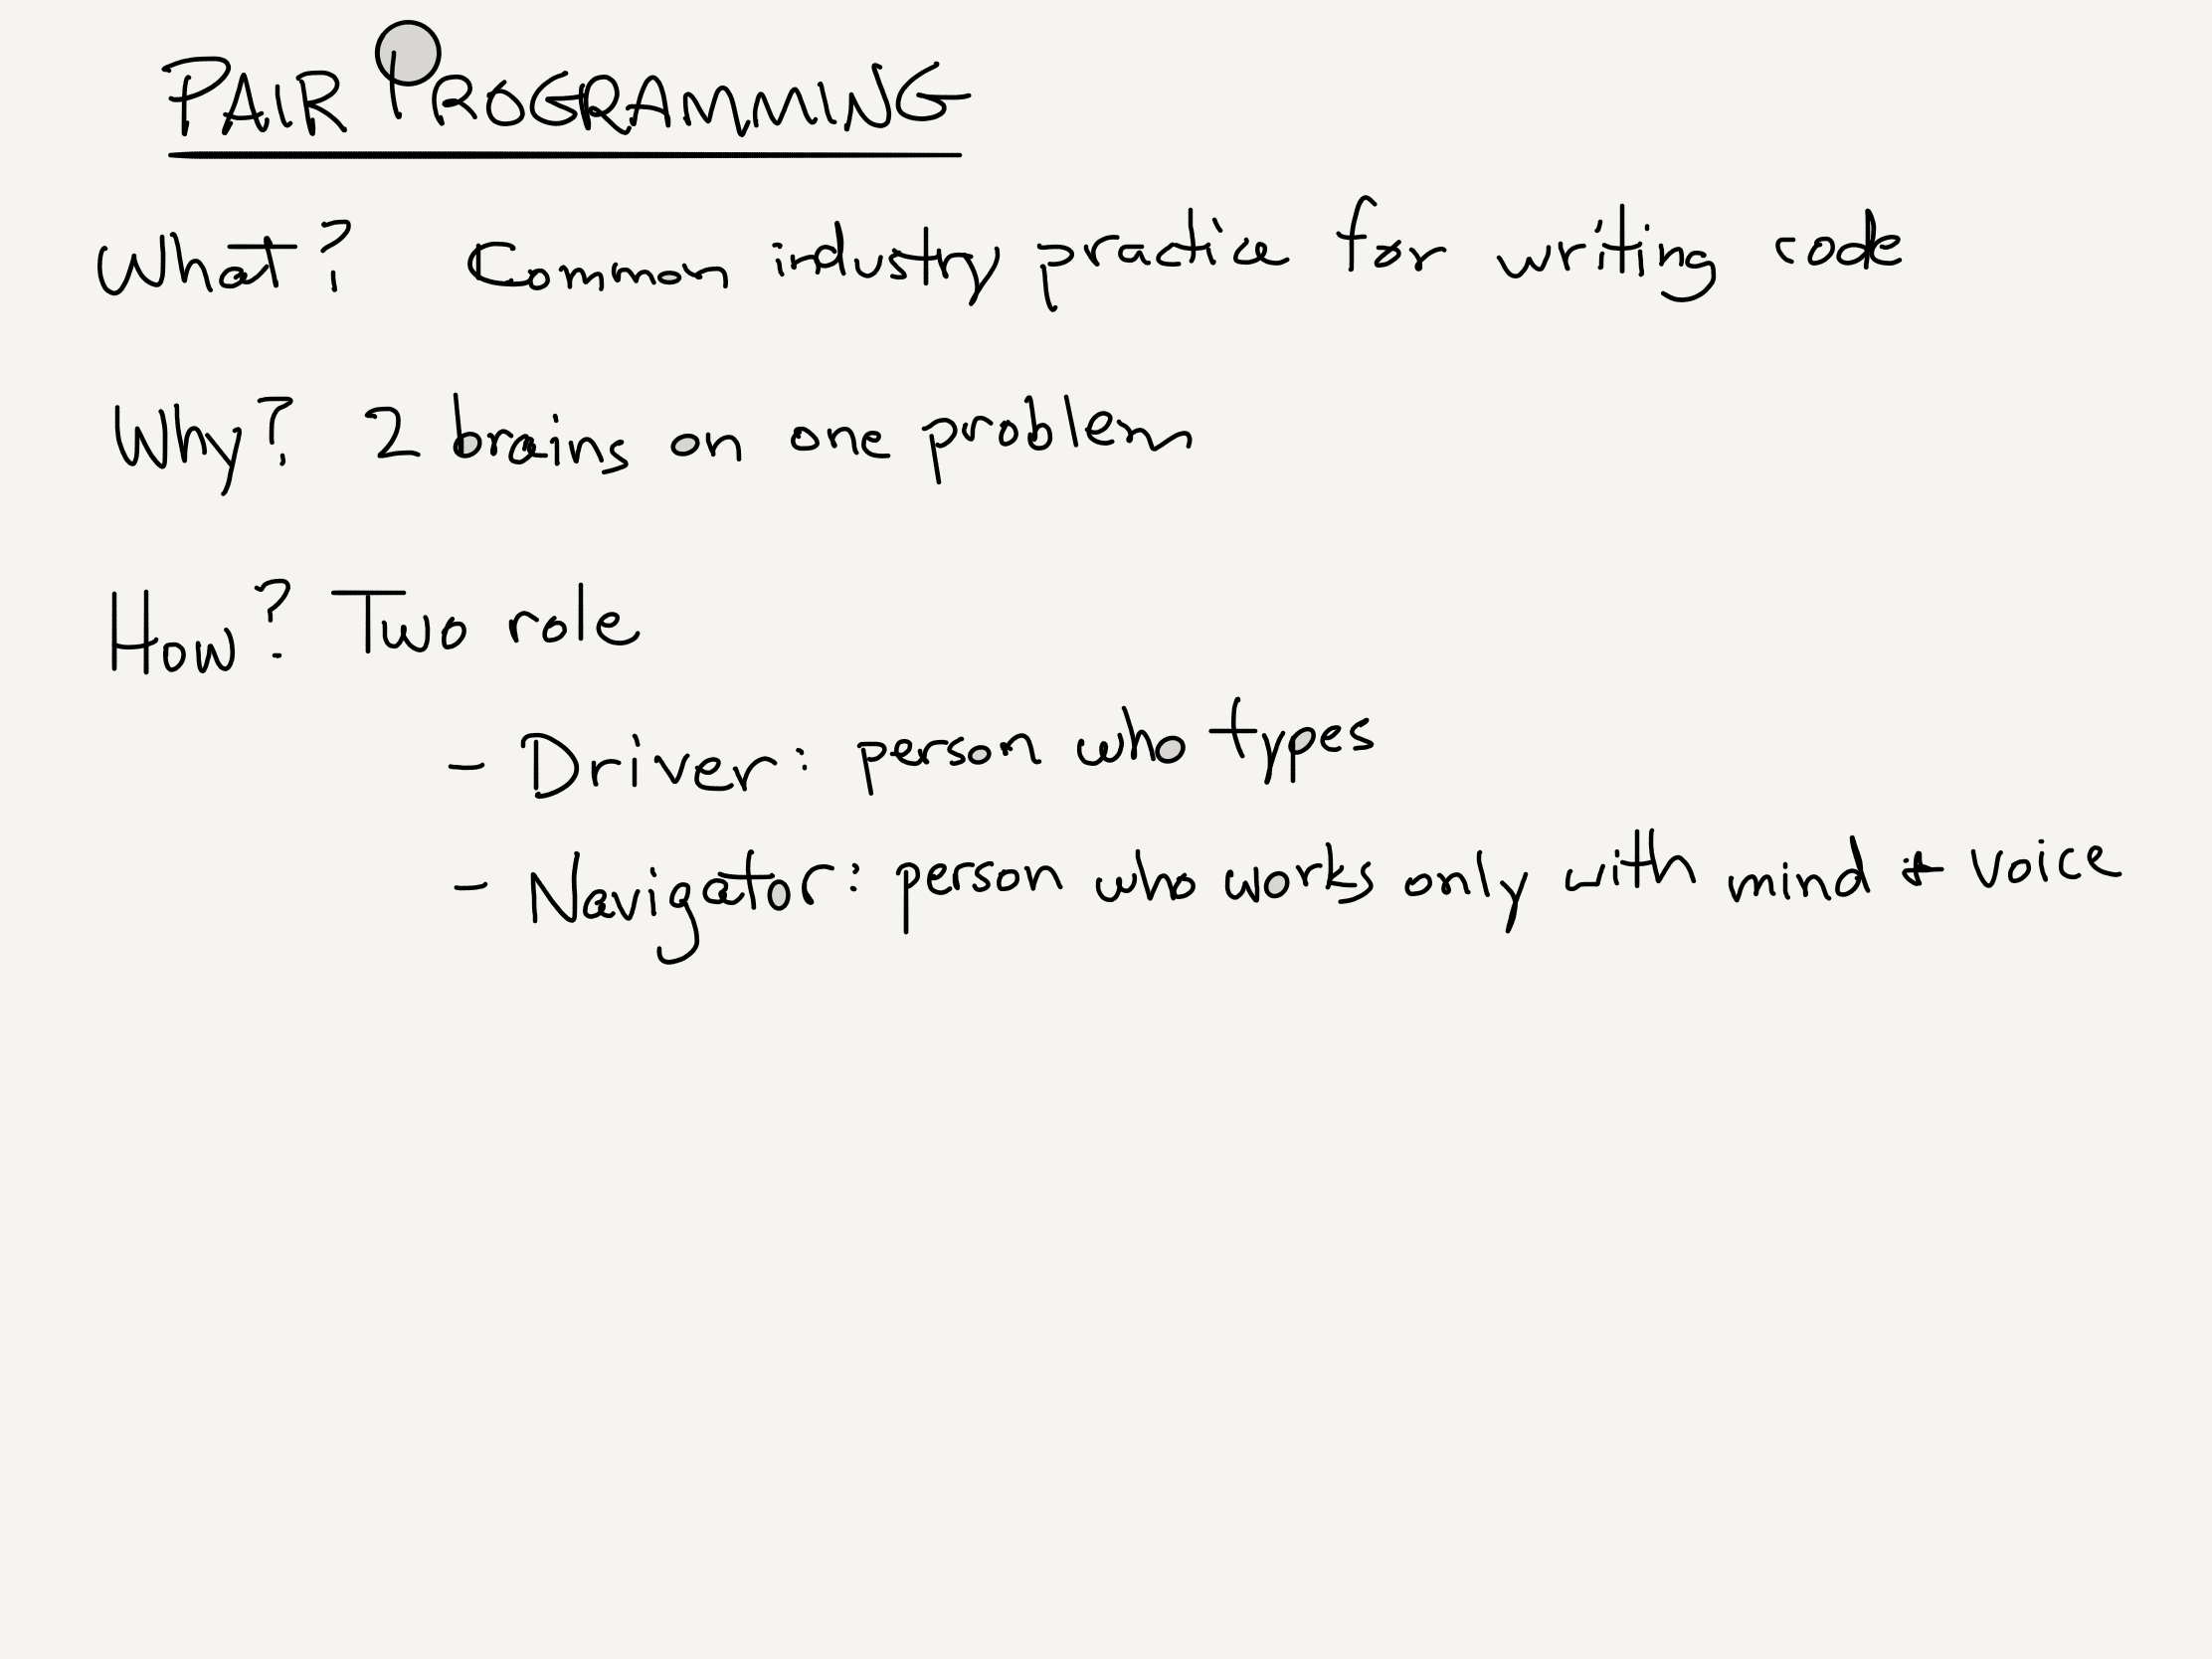 PAIR PROGRAMMING
What? Common industry practice for writing code
Why? 2 brains on one problem
How? Two role
- Driver: person who types
- Navigator: person who works only with mind + voice